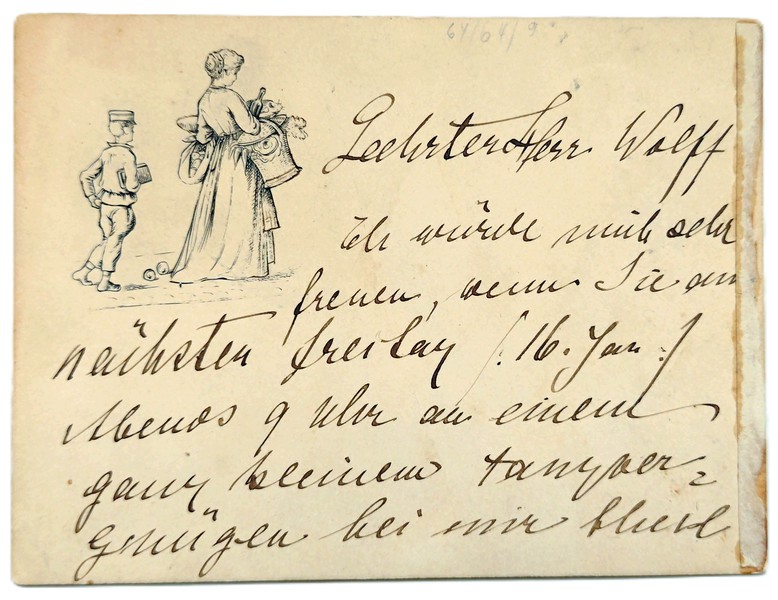 64/04/9
Geehrter Herr Wolff
Ich würde mich sehr
freuen, wenn Sie am
nächsten Freitag /: 16. Jan :/
Abends 9 Uhr an einem
ganz kleinem Tanzver=
gnügen bei mir theil